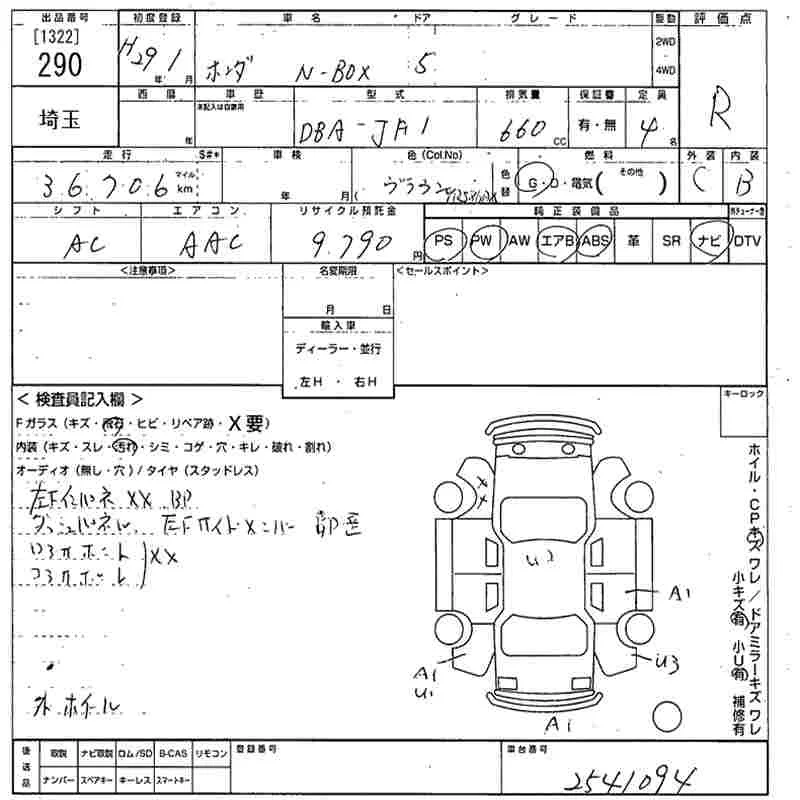 出品番号 初度登録 車名 ドア グレード 駆動 評価点
[1322]
290 H29 1 ホンダ N-BOX 5 2WD 4WD R
年 月
埼玉 西暦 車歴 型式 排気量 保証書 定員
本記入は自家用
年 DBA-JF1 660 cc 有・無 4 名
走行 S#* 車検 色(Col.No) 燃料 外装 内装
36706 マイル km 年 月 ブラウン 色替 G・D・電気( その他 ) C B
シフト エアコン リサイクル預託金 純正装備品
AC AAC 9.790 円 PS PW AW エアB ABS 革 SR ナビ DTV
<注意事項> 名変期限 <セールスポイント>
月 日
輸入車
ディーラー・並行
左H ・ 右H
< 検査員記入欄 > キーロック
Fガラス (キズ・飛石・ヒビ・リペア跡・X要)
内装 (キズ・スレ・汚れ・シミ・コゲ・穴・キレ・破れ・割れ)
オーディオ (無し・穴) / タイヤ (スタッドレス)
左Fインパネ XX BP
XX
XX
U2
A1
A1
U1
U3
A1
外ホイール
ホイル・CPキズワレ/ドアミラーキズワレ
小キズ有 小U有 補修有
後送品 取説 ナビ取説 ロム/SD B-CAS リモコン 登録番号 車台番号
ナンバー スペアキー キーレス スマートキー 2541094